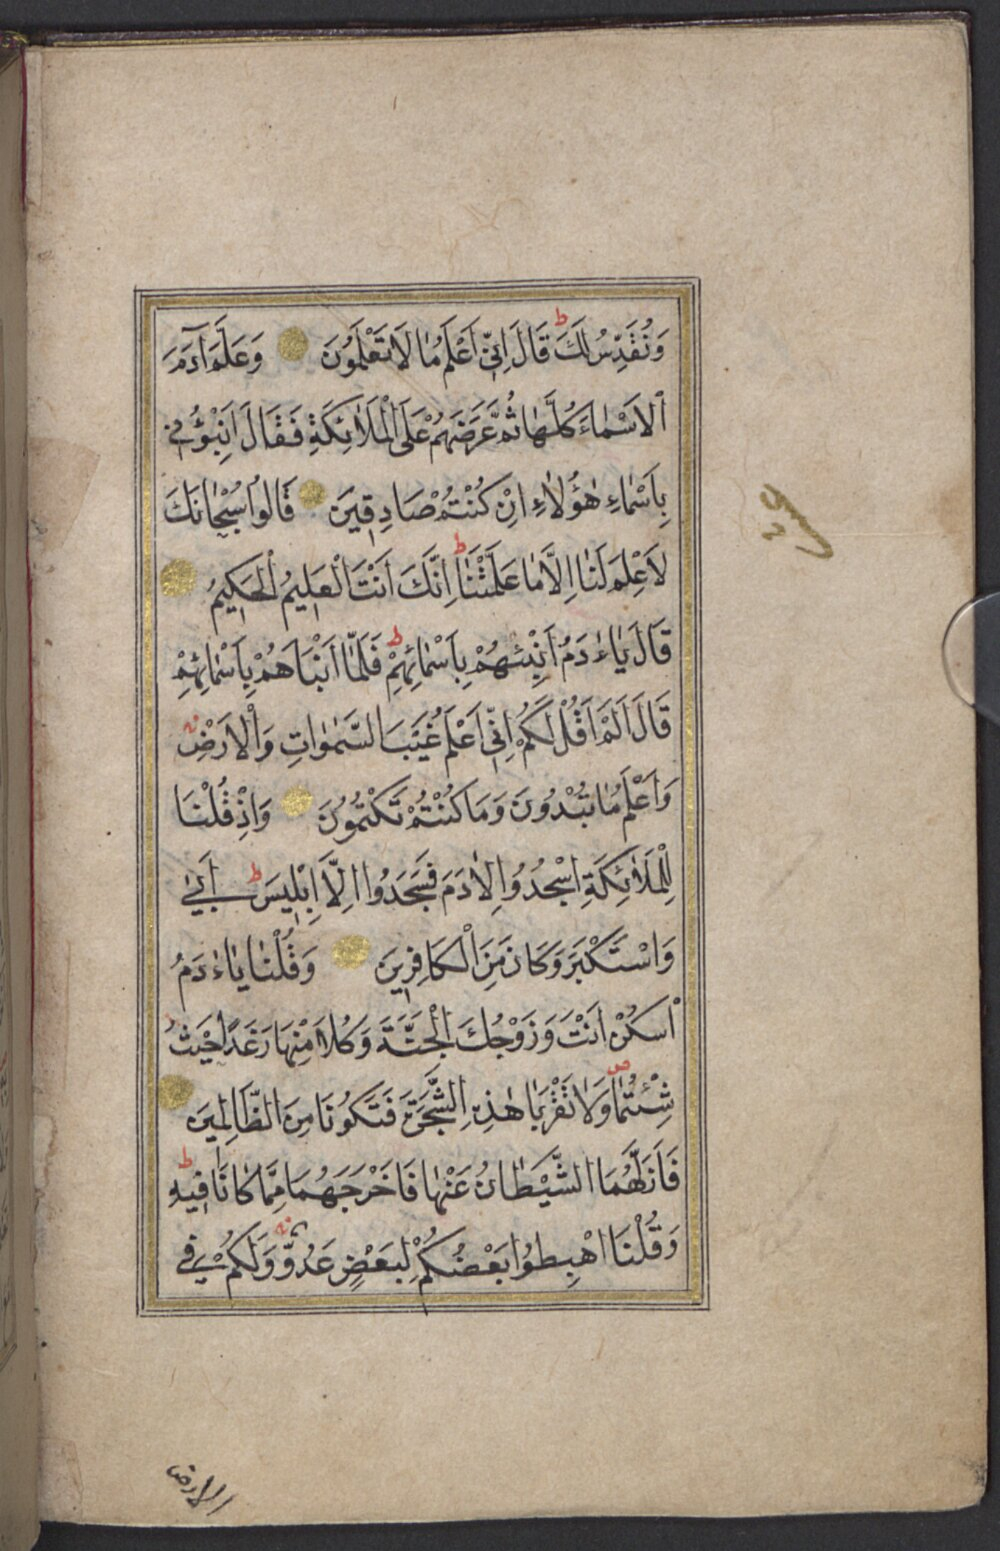 وَنُقَدِّسُ لَكَ ط قَالَ اِنّٖي اَعْلَمُ مَا لَا تَعْلَمُونَ وَعَلَّمَ اٰدَمَ
الْاَسْمَاءَ كُلَّهَا ثُمَّ عَرَضَهُمْ عَلَى الْمَلٰائِكَةِ فَقَالَ اَنْبِؤُنٖي
بِاَسْمَاءِ هٰؤُلَاءِ اِنْ كُنْتُمْ صَادِقٖينَ قَالُوا سُبْحَانَكَ
لَا عِلْمَ لَنَا اِلَّا مَا عَلَّمْتَنَا ط اِنَّكَ اَنْتَ الْعَلٖيمُ الْحَكٖيمُ
قَالَ يَاءٰدَمُ اَنْبِئْهُمْ بِاَسْمَائِهِمْ ط فَلَمَّا اَنْبَاَهُمْ بِاَسْمَائِهِمْ
قَالَ اَلَمْ اَقُلْ لَكُمْ اِنّٖي اَعْلَمُ غَيْبَ السَّمٰوَاتِ وَالْاَرْضِ
وَاَعْلَمُ مَا تُبْدُونَ وَمَا كُنْتُمْ تَكْتُمُونَ وَاِذْ قُلْنَا
لِلْمَلٰائِكَةِ اسْجُدُوا لِاٰدَمَ فَسَجَدُوا اِلَّا اِبْلٖيسَ ط اَبٰى
وَاسْتَكْبَرَ وَكَانَ مِنَ الْكَافِرٖينَ وَقُلْنَا يَاءٰدَمُ
اسْكُنْ اَنْتَ وَزَوْجُكَ الْجَنَّةَ وَكُلَا مِنْهَا رَغَدًا حَيْثُ
شِئْتُمَا ص وَلَا تَقْرَبَا هٰذِهِ الشَّجَرَةَ فَتَكُونَا مِنَ الظَّالِمٖينَ
فَاَزَلَّهُمَا الشَّيْطَانُ عَنْهَا فَاَخْرَجَهُمَا مِمَّا كَانَا فٖيهِ ط
وَقُلْنَا اهْبِطُوا بَعْضُكُمْ لِبَعْضٍ عَدُوٌّ وَلَكُمْ فِي
الارض